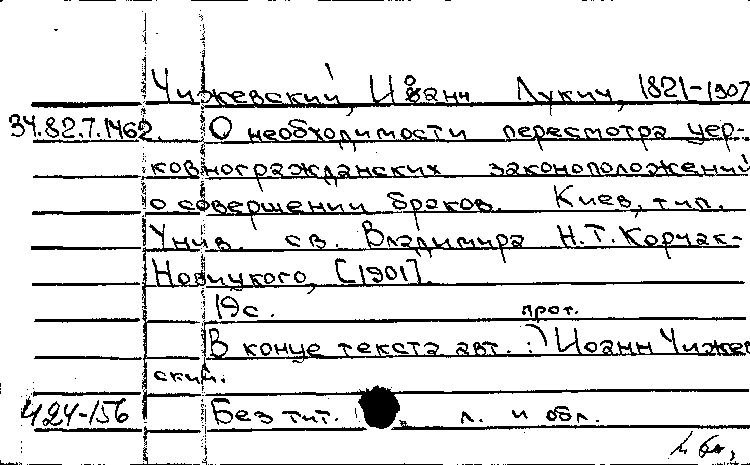 Чижевский, Иоанн Лукич, 1821-1907
34.82.7.1462. О необходимости пересмотра цер-
ковногражданских законоположений
о совершении браков. Киев, тип.
Унив. св. Владимира Н.Т. Корчак-
Новицкого, [1901].
19с.
В конце текста авт.: прот. Иоанн Чижев
ский.
424-156 Без тит. л. и обл.